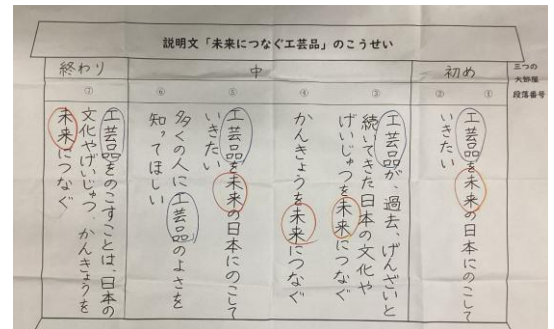 説明文「未来につなぐ工芸品」のこうせい
三つの
大部屋
段落番号
初め
中
終わり
①
②
③
④
⑤
⑥
⑦
工芸品を未来の日本にのこして
いきたい
工芸品が、過去、げんざいと
続いてきた日本の文化や
げいじゅつを未来につなぐ
かんきょうを未来につなぐ
工芸品を未来の日本にのこして
いきたい
多くの人に工芸品のよさを
知ってほしい
工芸品をのこすことは、日本の
文化やげいじゅつ、かんきょうを
未来につなぐ